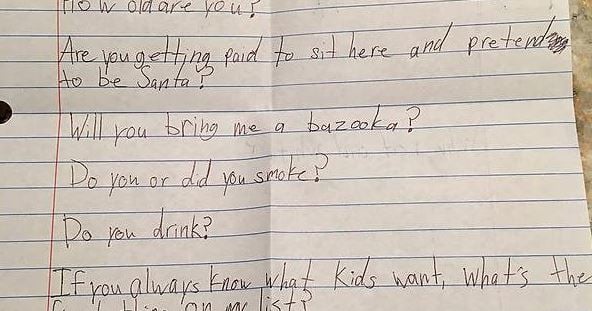 How old are you?
Are you getting paid to sit here and pretend
to be Santa?
Will you bring me a bazooka?
Do you or did you smoke?
Do you drink?
If you always know what kids want, what's the
on my list?